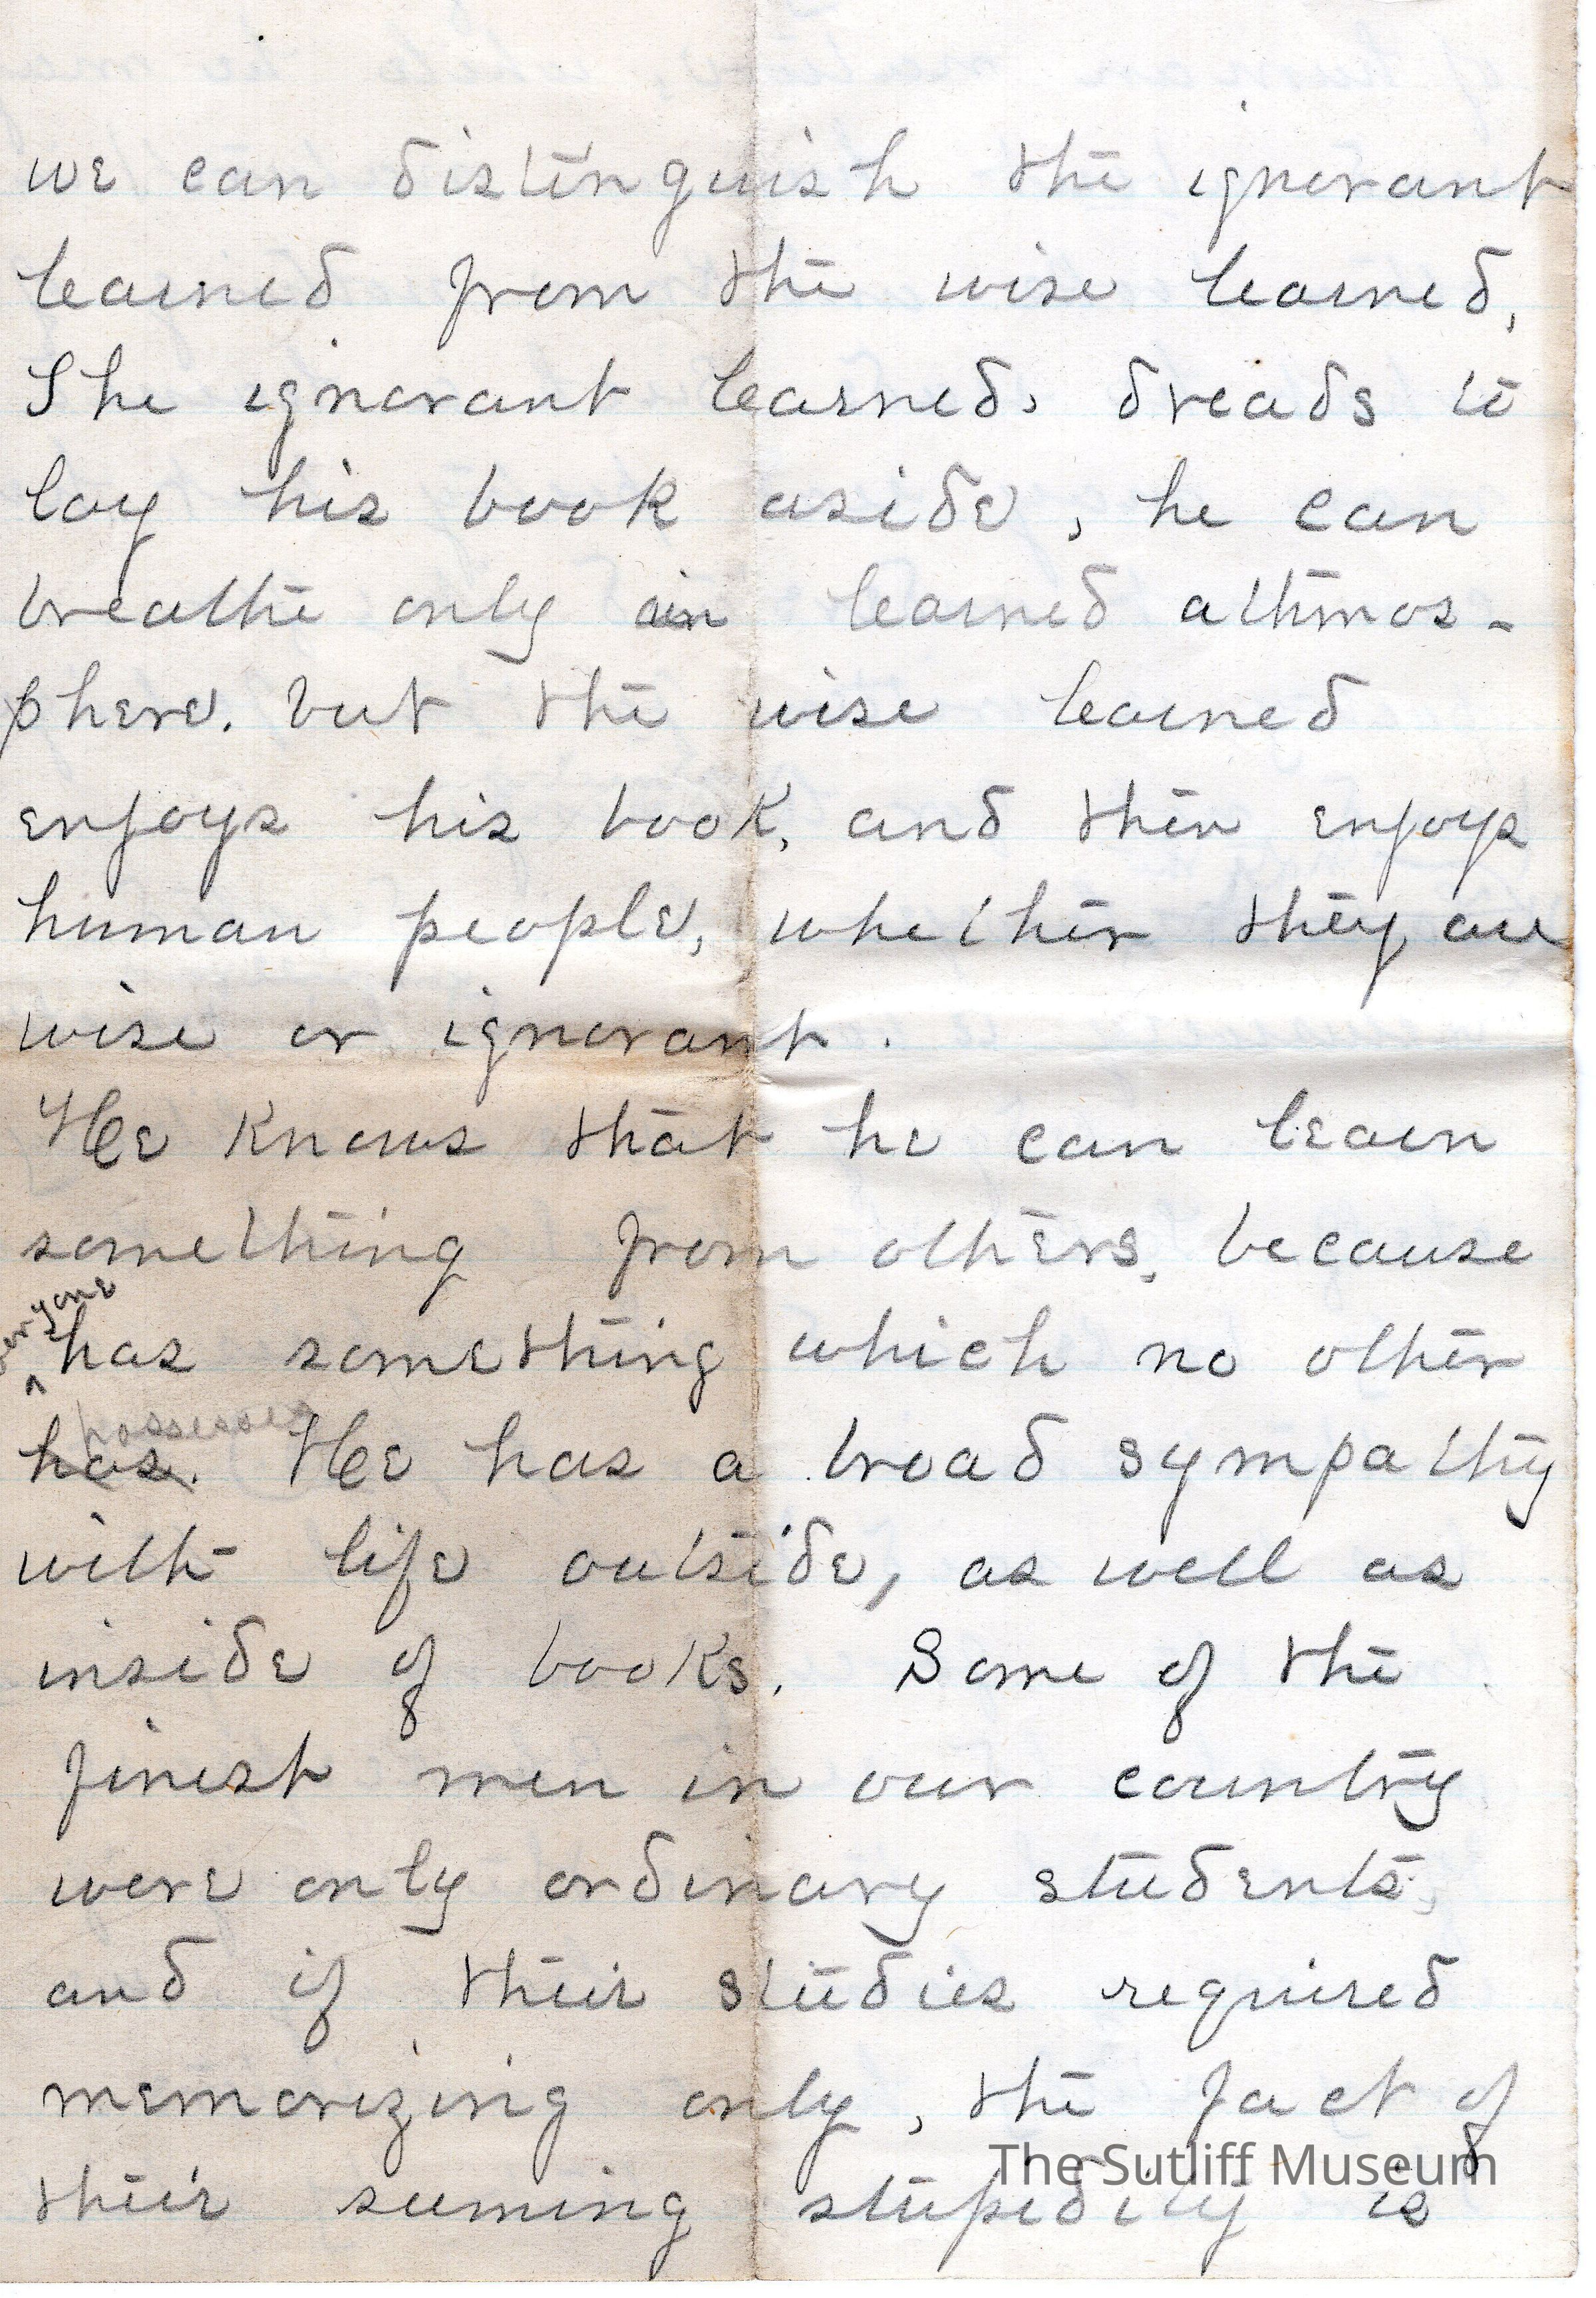 we can distinguish the ignorant
learned from the wise learned,
The ignorant learned, dreads to
lay his book aside, he can
breathe only in learned athmos-
phere. but the wise learned
enjoys his book, and then enjoys
human people, whether they are
wise or ignorant.
He knows that he can learn
something from others, because
everyone
has something which no other
possesses
has. He has a broad sympathy
with life outside, as well as
inside of books. Some of the
finest men in our country
were only ordinary students,
and if their studies required
memorizing only, the fact of
The Sutliff Museum
their seeming stupidity is